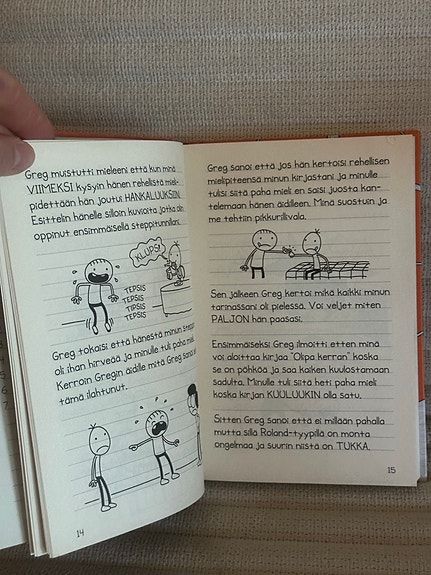 Greg muistutti mieleeni että kun minä
VIIMEKSI kysyin hänen rehellistä mieli-
pidettään hän joutui HANKALUUKSIIN.
Esittelin hänelle silloin kuvioita jotka olin
oppinut ensimmäisellä steppitunnillani.
KLUPS!
TEPSIS
TEPSIS
TIPSIS
TEPSIS
Greg tokaisi että hänestä minun steppi
oli ihan hirveää ja minulle tuli paha
Kerroin Gregin äidille mitä Greg sanoi
tämä ilahtunut.
14
Greg sanoi että jos hän kertoisi rehellisen
mielipiteensä minun kirjastani ja minulle
tulisi siitä paha mieli en saisi juosta kan-
telemaan hänen äidilleen. Minä suostuin ja
me tehtiin pikkurillivala.
Sen jälkeen Greg kertoi mikä kaikki minun
tarinassani oli pielessä. Voi veljet miten
PALJON hän paasasi.
Ensimmäiseksi Greg ilmoitti etten minä
voi aloittaa kirjaa "Olipa kerran" koska
se on pöhköä ja saa kaiken kuulostamaan
sadulta. Minulle tuli siitä heti paha mieli
koska kirjan KUULUUKIN olla satu.
Sitten Greg sanoi että ei millään pahalla
mutta sillä Roland-tyypillä on monta
ongelmaa ja suurin niistä on TUKKA.
15